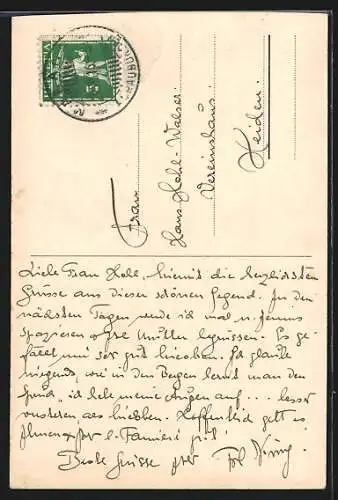 HELVETIA
5
Frau
Hans Hohl-Walser
Vereinshaus
Heiden.
Liebe Frau Hohl, hiermit die herzlichsten
Grüsse aus dieser schönen Gegend. In den
nächsten Tagen werde ich mal n.
spazieren Mutter begrüssen. Es ge-
fällt mir sehr gut hieoben. Ich glaube
nirgends, wie in den Bergen lernt man den
Spruch "ich hebe meine Augen auf ... besser
verstehen als hieoben. Hoffentlich geht es
Ihnen l. Familie gut.
Beste Grüsse Ihre